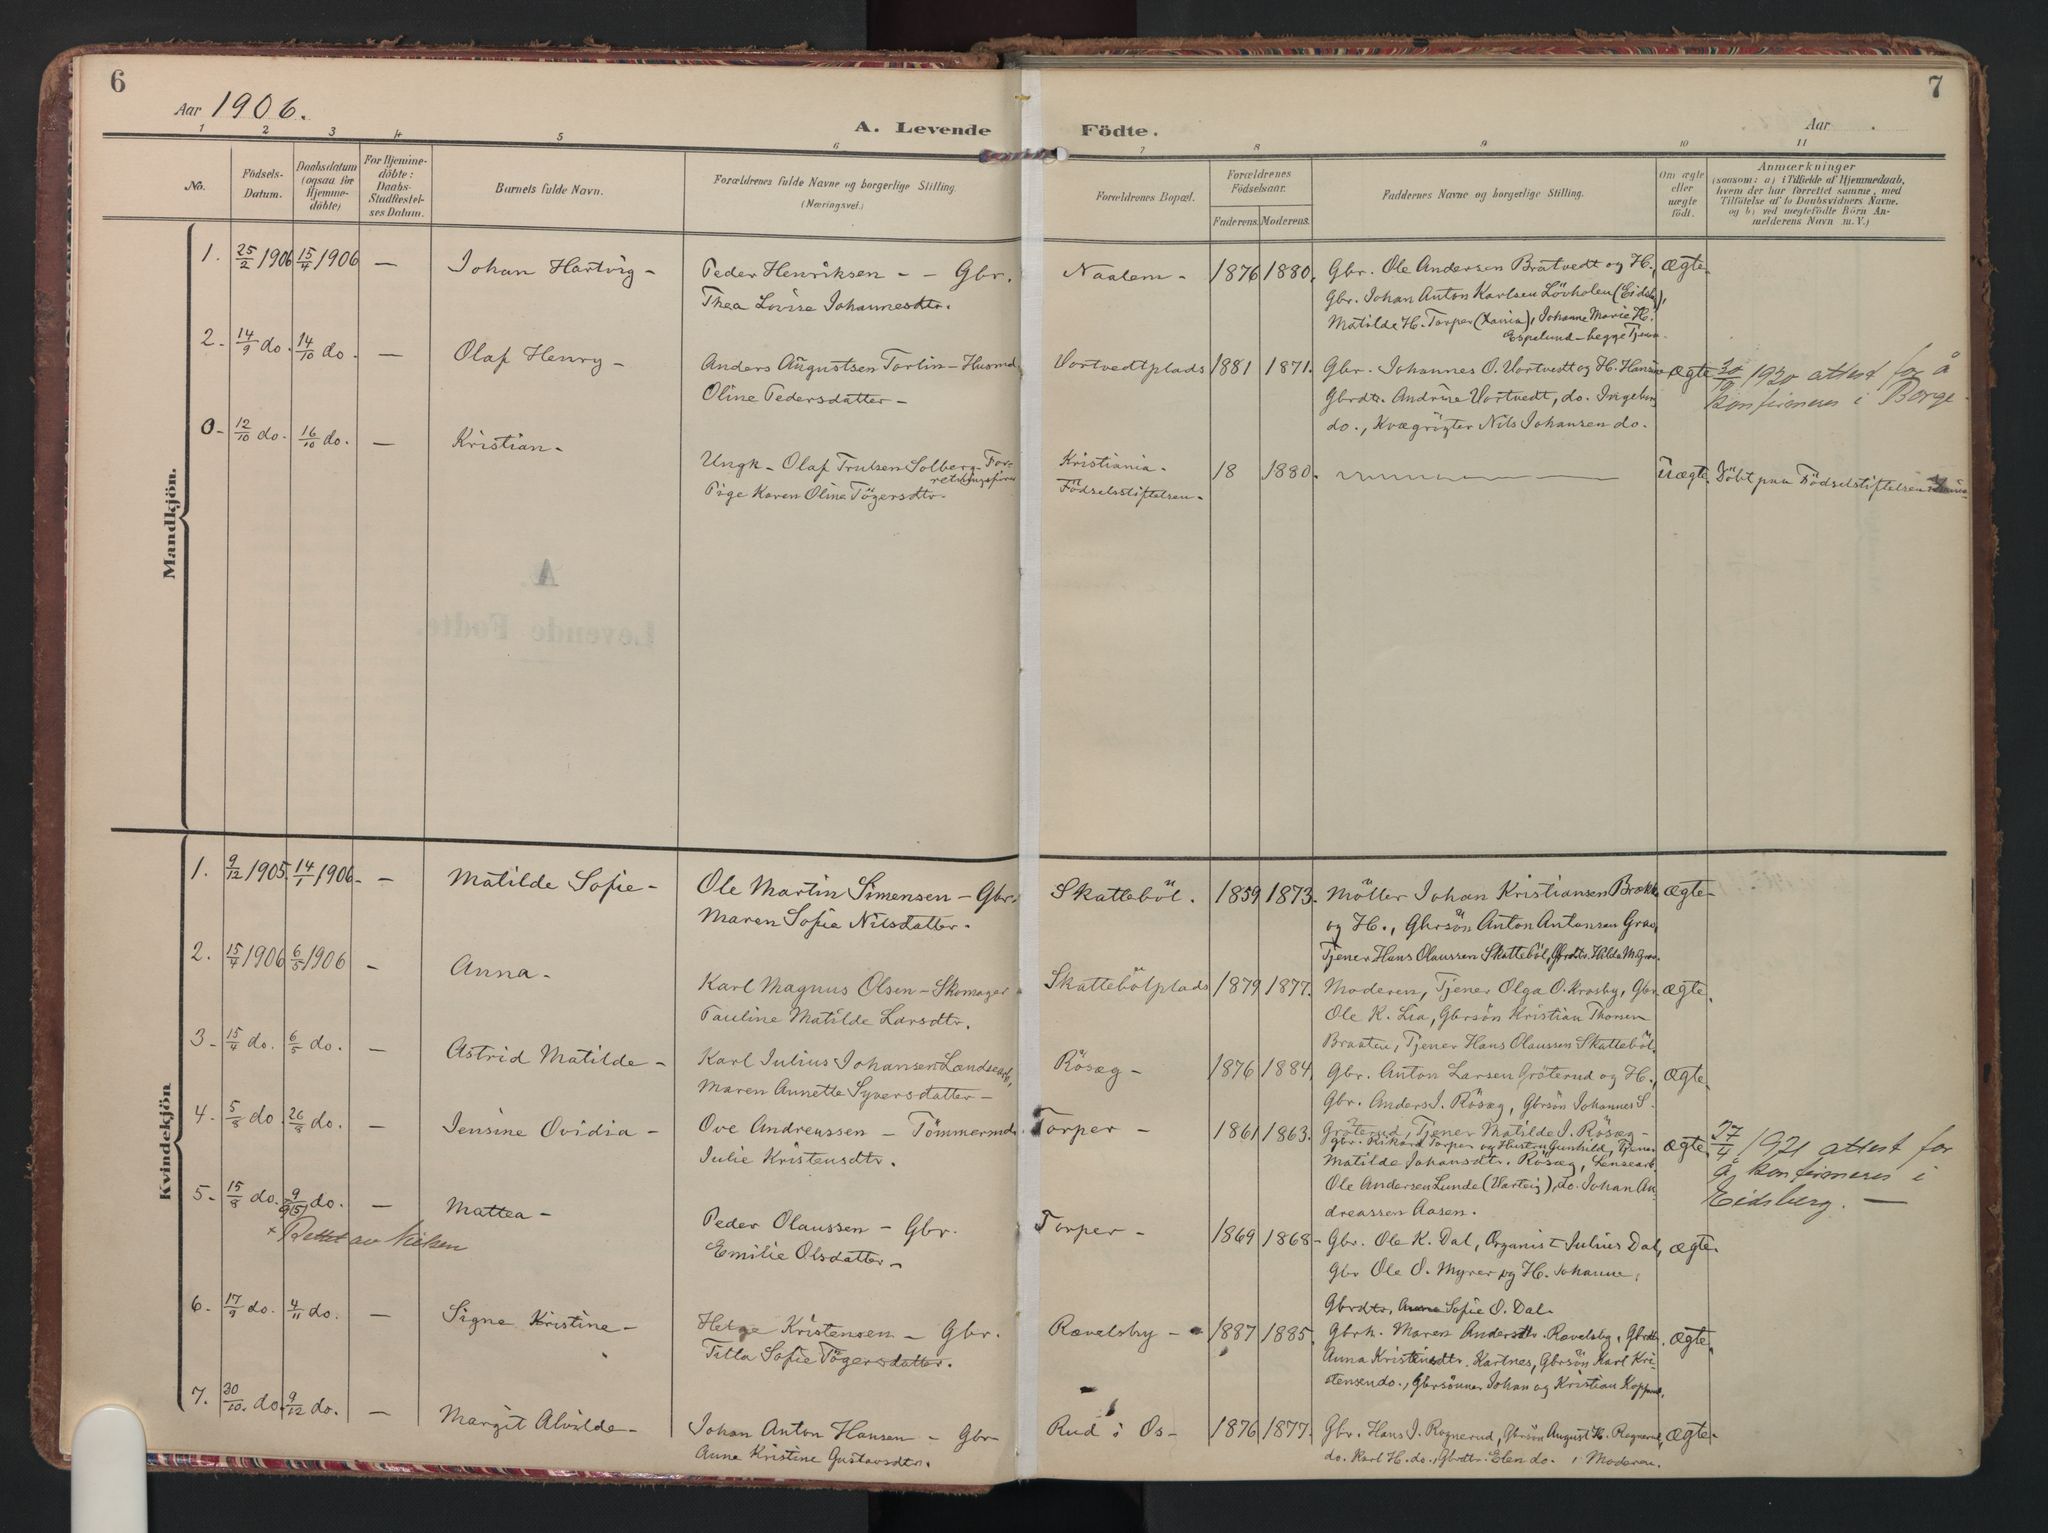 6
7
Aar 1906.
Aar
A. Levende Födte.
1 2 3 4 5 6 7 8 9 10 11
No.
Födsels-Datum.
Daabsdatum (ogsaa for Hjemmedöbte)
For Hjemmedöbte: Daabs-Stadfæstelses Datum.
Barnets fulde Navn.
Forældrenes fulde Navne og borgerlige Stilling.
(Næringsvei.)
Forældrenes Bopæl.
Forældrenes Födselsaar.
Faderens. Moderens.
Faddernes Navne og borgerlige Stilling.
Om ægte eller uægte födt.
Anmærkninger
(saasom: a) i Tilfælde af Hjemmedaab,
hvem der har forrettet samme, med
Tilföielse af to Daabsvidners Navne.
og b) ved uægtefödte Börn An-
melderens Navn m. V.)
Mandkjön.
1. 25/2 1906 15/4 1906 — Johan Hartvig — Peder Henriksen — — Gbr. Naalem — 1876 1880. Gbr. Ole Andersen Bratvedt og H., ægte
Thea Lovise Johannesdtr. Gbr. Johan Anton Karlsen Lövholen (Eidsb),
Matilde H. Torper (Xania), Johanne Marie H.
Espelund — begge Tjen
2. 14/9 do. 14/10 do. — Olaf Henry — Anders Augustsen Torlin — Husmd Vortvedtplads 1881 1871. Gbr. Johannes O. Vortvedt og H. Hansine ægte 30/9 1920 attest for å
Oline Pedersdatter — Gbrdtr. Andrine Vortvedt, do. Ingeborg konfirmeres i Borge.
do., Kvægrögter Nils Johansen do.
0. 12/10 do. 16/10 do. — Kristian — Ungk. Olaf Trulsen Solberg — For- Kristiania — 18 1880. uægte. Döbt paa Födselstiftelsen
retningsförer
Pige Karen Oline Tögersdtr. Födselsstiftelsen —
A.
Levende Fødte.
Kvindekjön
1. 9/12 1905. 14/1 1906 — Matilde Sofie — Ole Martin Simensen — Gbr. Skatteböl. 1859 1873. Möller Johan Kristiansen Brækk ægte
Maren Sofie Nilsdatter. og H., Gbrsön Anton Antonsen Graa,
Tjener Hans Olaussen Skatteböl, Gbrdtr. Hilda M. Graa.
2. 15/4 1906 6/5 1906 — Anna — Karl Magnus Olsen — Skomager Skattebölplads 1879 1877. Moderen, Tjener Olga O. Krosby, Gbr. ægte.
Pauline Matilde Larsdtr. Ole K. Lia, Gbrsön Kristian Thorsen
Braaten, Tjener Hans Olaussen Skatteböl.
3. 15/4 do. 6/5 do. — Astrid Matilde — Karl Julius Johansen Landsearb, Rösæg — 1876 1884. Gbr. Anton Larsen Gröterud og H., ægte.
Maren Annette Syversdatter — Gbr. Anders J. Rösæg, Gbrsön Johannes S.
Gröterud, Tjener Matilde J. Rösæg —
4. 5/8 do. 26/8 do. — Jensine Ovidia — Ove Andreassen — Tömmermd. Torper — 1861 1863. Gbr. Rikard Torper og Hustru Gunhild, Tjener ægte 27/4 1921 attest for
Julie Kristensdtr. Matilde Johansdtr. Rösæg, Lensearb. å konfirmeres i
Ole Andersen Lunde (Varteig), do. Johan An- Eidsberg. —
dreassen Aasen.
5. 15/8 do. 9/9 (5) do. — Mattea — Peder Olaussen — Gbr. Torper — 1869 1868 — Gbr. Ole K. Dal, Organist Julius Dal, ægte.
× Rettet av Nielsen Emilie Olsdatter — Gbr. Ole O. Myrer og H. Johanne,
Gbrdtr. Anna Sofie O. Dal.
6. 17/9 do. 4/11 do. — Signe Kristine — Helge Kristensen — Gbr. Rævelsby — 1887 1885. Gbrk. Maren Andersdtr. Rævelsby, Gbrdtr. ægte.
Tilla Sofie Tögersdatter. Anna Kristensdtr. Kartnes, Gbrsön Karl Kri-
stensen do., Gbrsönner Johan og Kristian
7. 30/10. do. 9/12 do. — Margit Alvilde — Johan Anton Hansen — Gbr. Rud i Os — 1876 1877. Gbr. Hans J. Rognerud, Gbrsön August H. Rognerud, ægte
Anna Kristine Gustavsdtr. do. Karl H. do., Gbrdtr. Elen do., Moderen.